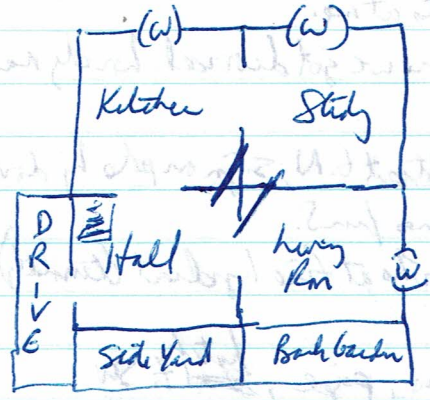 (W) (W)
Kitchen Study
DRIVE
Hall Living
Rm
(W)
Side Yard Back Garden